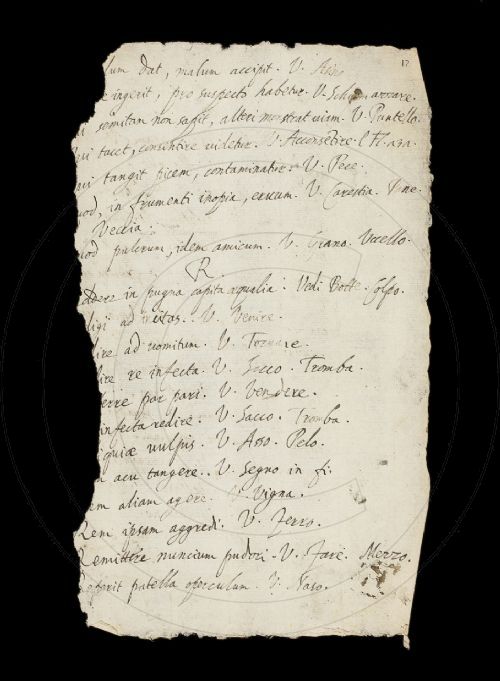 12
lum dat, malum accipit. V. Asino
e ingerit, pro suspecto habetur. V.
semitam non sapit, alteri monstrat viam. V. Puntello.
ui tacet, consentire videtur. V. Acconsetire.
ui tangit picem, contaminatur. V. Pece.
uod, in frumenti inopia, ervum. V. Carestia. Vine.
Veccia.
uod pulcrum, idem amicum. V. Uccello.
R
adere in pugna capita aqualia. Vedi Botte. Colpo.
digi ad V. Venire.
dire ad vomitum. V. Tornare.
dire re infecta. V. Secco. Tromba.
ferre par pari. V. Vendere.
infecta redire. V. Sacco. Tromba.
quiæ vulpis. V. Asso. Pelo.
m acu tangere. V. Segno in fi.
em aliam agere. V. Vigna.
Rem ipsam aggredi. V. Ferro.
Remittere nuncium pudori. V. Fare. Mezzo.
eperit patella operculum. V. Naso.